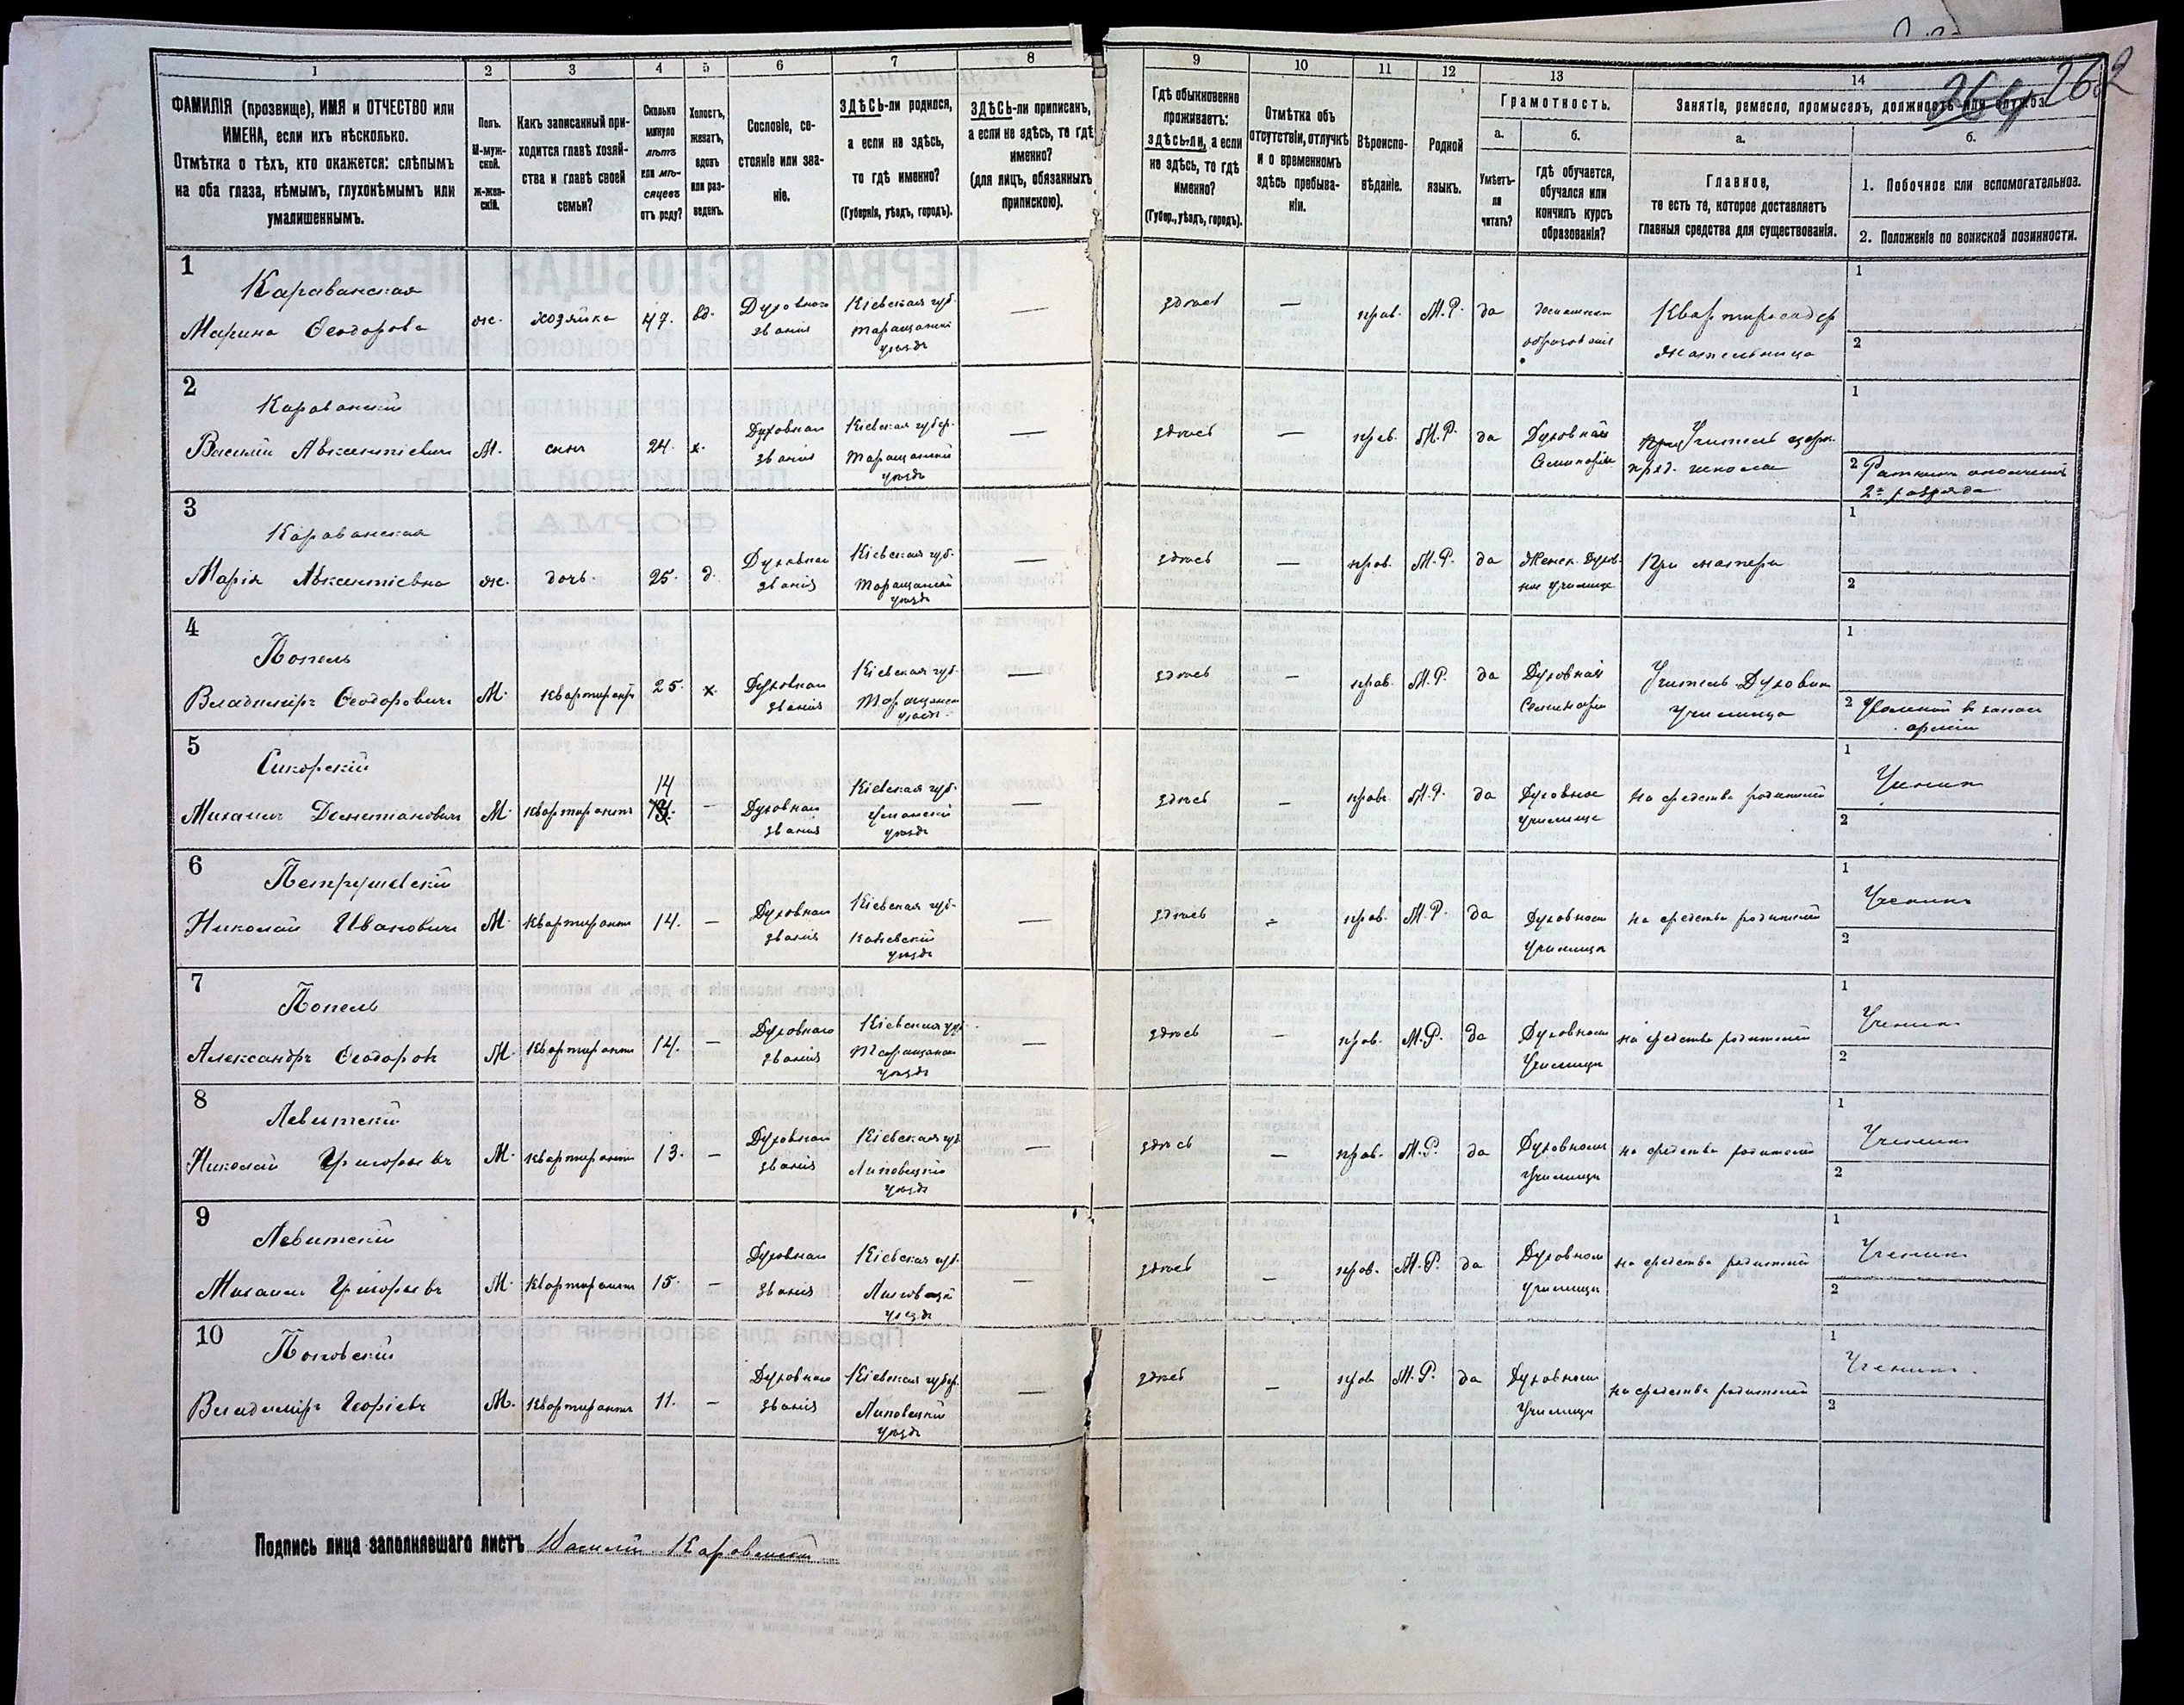 264 262
1 2 3 4 5 6 7 8 9 10 11 12 13 14
ФАМИЛІЯ (прозвище), ИМЯ и ОТЧЕСТВО или
ИМЕНА, если ихъ нѣсколько.
Отмѣтка о тѣхъ, кто окажется: слѣпымъ
на оба глаза, нѣмымъ, глухонѣмымъ или
умалишеннымъ.
Полъ.
М-муж-
ской.
ж-жен-
скій.
Какъ записанный при-
ходится главѣ хозяй-
ства и главѣ своей
семьи?
Сколько
минуло
лѣтъ
или мѣ-
сяцевъ
отъ роду?
Холостъ,
женатъ,
вдовъ
или раз-
веденъ.
Сословіе, со-
стояніе или зва-
ніе.
ЗДѢСЬ-ли родился,
а если не здѣсь,
то гдѣ именно?
(Губернія, уѣздъ, городъ).
ЗДѢСЬ-ли приписанъ,
а если не здѣсь, то гдѣ
именно?
(для лицъ, обязанныхъ
припискою).
Гдѣ обыкновенно
проживаетъ:
ЗДѢСЬ-ли, а если
не здѣсь, то гдѣ
именно?
(Губер., уѣздъ, городъ).
Отмѣтка объ
отсутствіи, отлучкѣ
и о временномъ
здѣсь пребыва-
ніи.
Вѣроиспо-
вѣданіе.
Родной
языкъ.
Грамотность.
а.
Умѣетъ-
ли
читать?
б.
гдѣ обучается,
обучался или
кончилъ курсъ
образованія?
Занятіе, ремесло, промыселъ, должность или служба.
а.
Главное,
то есть то, которое доставляетъ
главныя средства для существованія.
б.
1. Побочное или вспомогательное.
2. Положеніе по воинской повинности.
1
Караванская
Марина Ѳеодорова
ж. хозяйка 47. вд. Духовнаго
званія
Кіевская губ.
Таращанскій
уѣздъ
—
здѣсь — прав. М.Р. да домашнее
образованіе
1
2
2
Караванскій
Василій Авксентіевичъ
М. сынъ 24. х. Духовнаго
званія
Кіевская губер.
Таращанскій
уѣздъ
—
здѣсь — прав. М.Р. да Духовная
Семинарія
Учитель церк.
прих. школы
1
2 Ратникъ ополченія
2го разряда
3
Караванская
Марія Авксентіевна
ж. дочь. 25. д. Духовнаго
званія
Кіевская губ.
Таращанскій
уѣздъ
—
здѣсь — прав. М.Р. да Женск. Духов-
ное училище
При матери
1
2
4
Попель
Владиміръ Ѳеодоровичъ
М. квартирантъ 25. х. Духовнаго
званія
Кіевская губ.
Таращанскій
уѣздъ
—
здѣсь — прав. М.Р. да Духовная
Семинарія
Учитель Духовн.
училища
1
2 Уволенный въ запасъ
арміи
5
Сикорскій
Михаилъ
М. квартирантъ 14 — Духовнаго
званія
Кіевская губ.
Уманскій
уѣздъ
—
здѣсь — прав. М.Р. да Духовное
училище
на средства родителей
1 Ученикъ
2
6
Петрушевскій
Николай Ивановичъ
М. квартирантъ 14. — Духовнаго
званія
Кіевская губ.
Каневскій
уѣздъ
—
здѣсь — прав. М.Р. да Духовномъ
училищѣ
на средства родителей
1 Ученикъ
2
7
Попель
Александръ Ѳеодоровъ
М. квартирантъ 14. — Духовнаго
званія
Кіевская губ.
Таращанскій
уѣздъ
—
здѣсь — прав. М.Р. да Духовномъ
Училищѣ
на средства родителей
1 Ученикъ
2
8
Левитскій
Николай Григорьевъ
М. квартирантъ 13. — Духовнаго
званія
Кіевская губ.
Липовецкій
уѣздъ
—
здѣсь — прав. М.Р. да Духовномъ
Училищѣ
на средства родителей
1 Ученикъ
2
9
Левитскій
Михаилъ Григорьевъ
М. квартирантъ 15. — Духовнаго
званія
Кіевская губ.
Липовецкій
уѣздъ
—
здѣсь — прав. М.Р. да Духовномъ
училищѣ
на средства родителей
1 Ученикъ
2
10
Поповскій
Владиміръ
М. квартирантъ 11. — Духовнаго
званія
Кіевская губер.
Липовецкій
уѣздъ
—
здѣсь — прав М.Р. да Духовномъ
Училищѣ
на средства родителей
1 Ученикъ.
2
Подпись лица заполнявшаго листъ Василій Караванскій